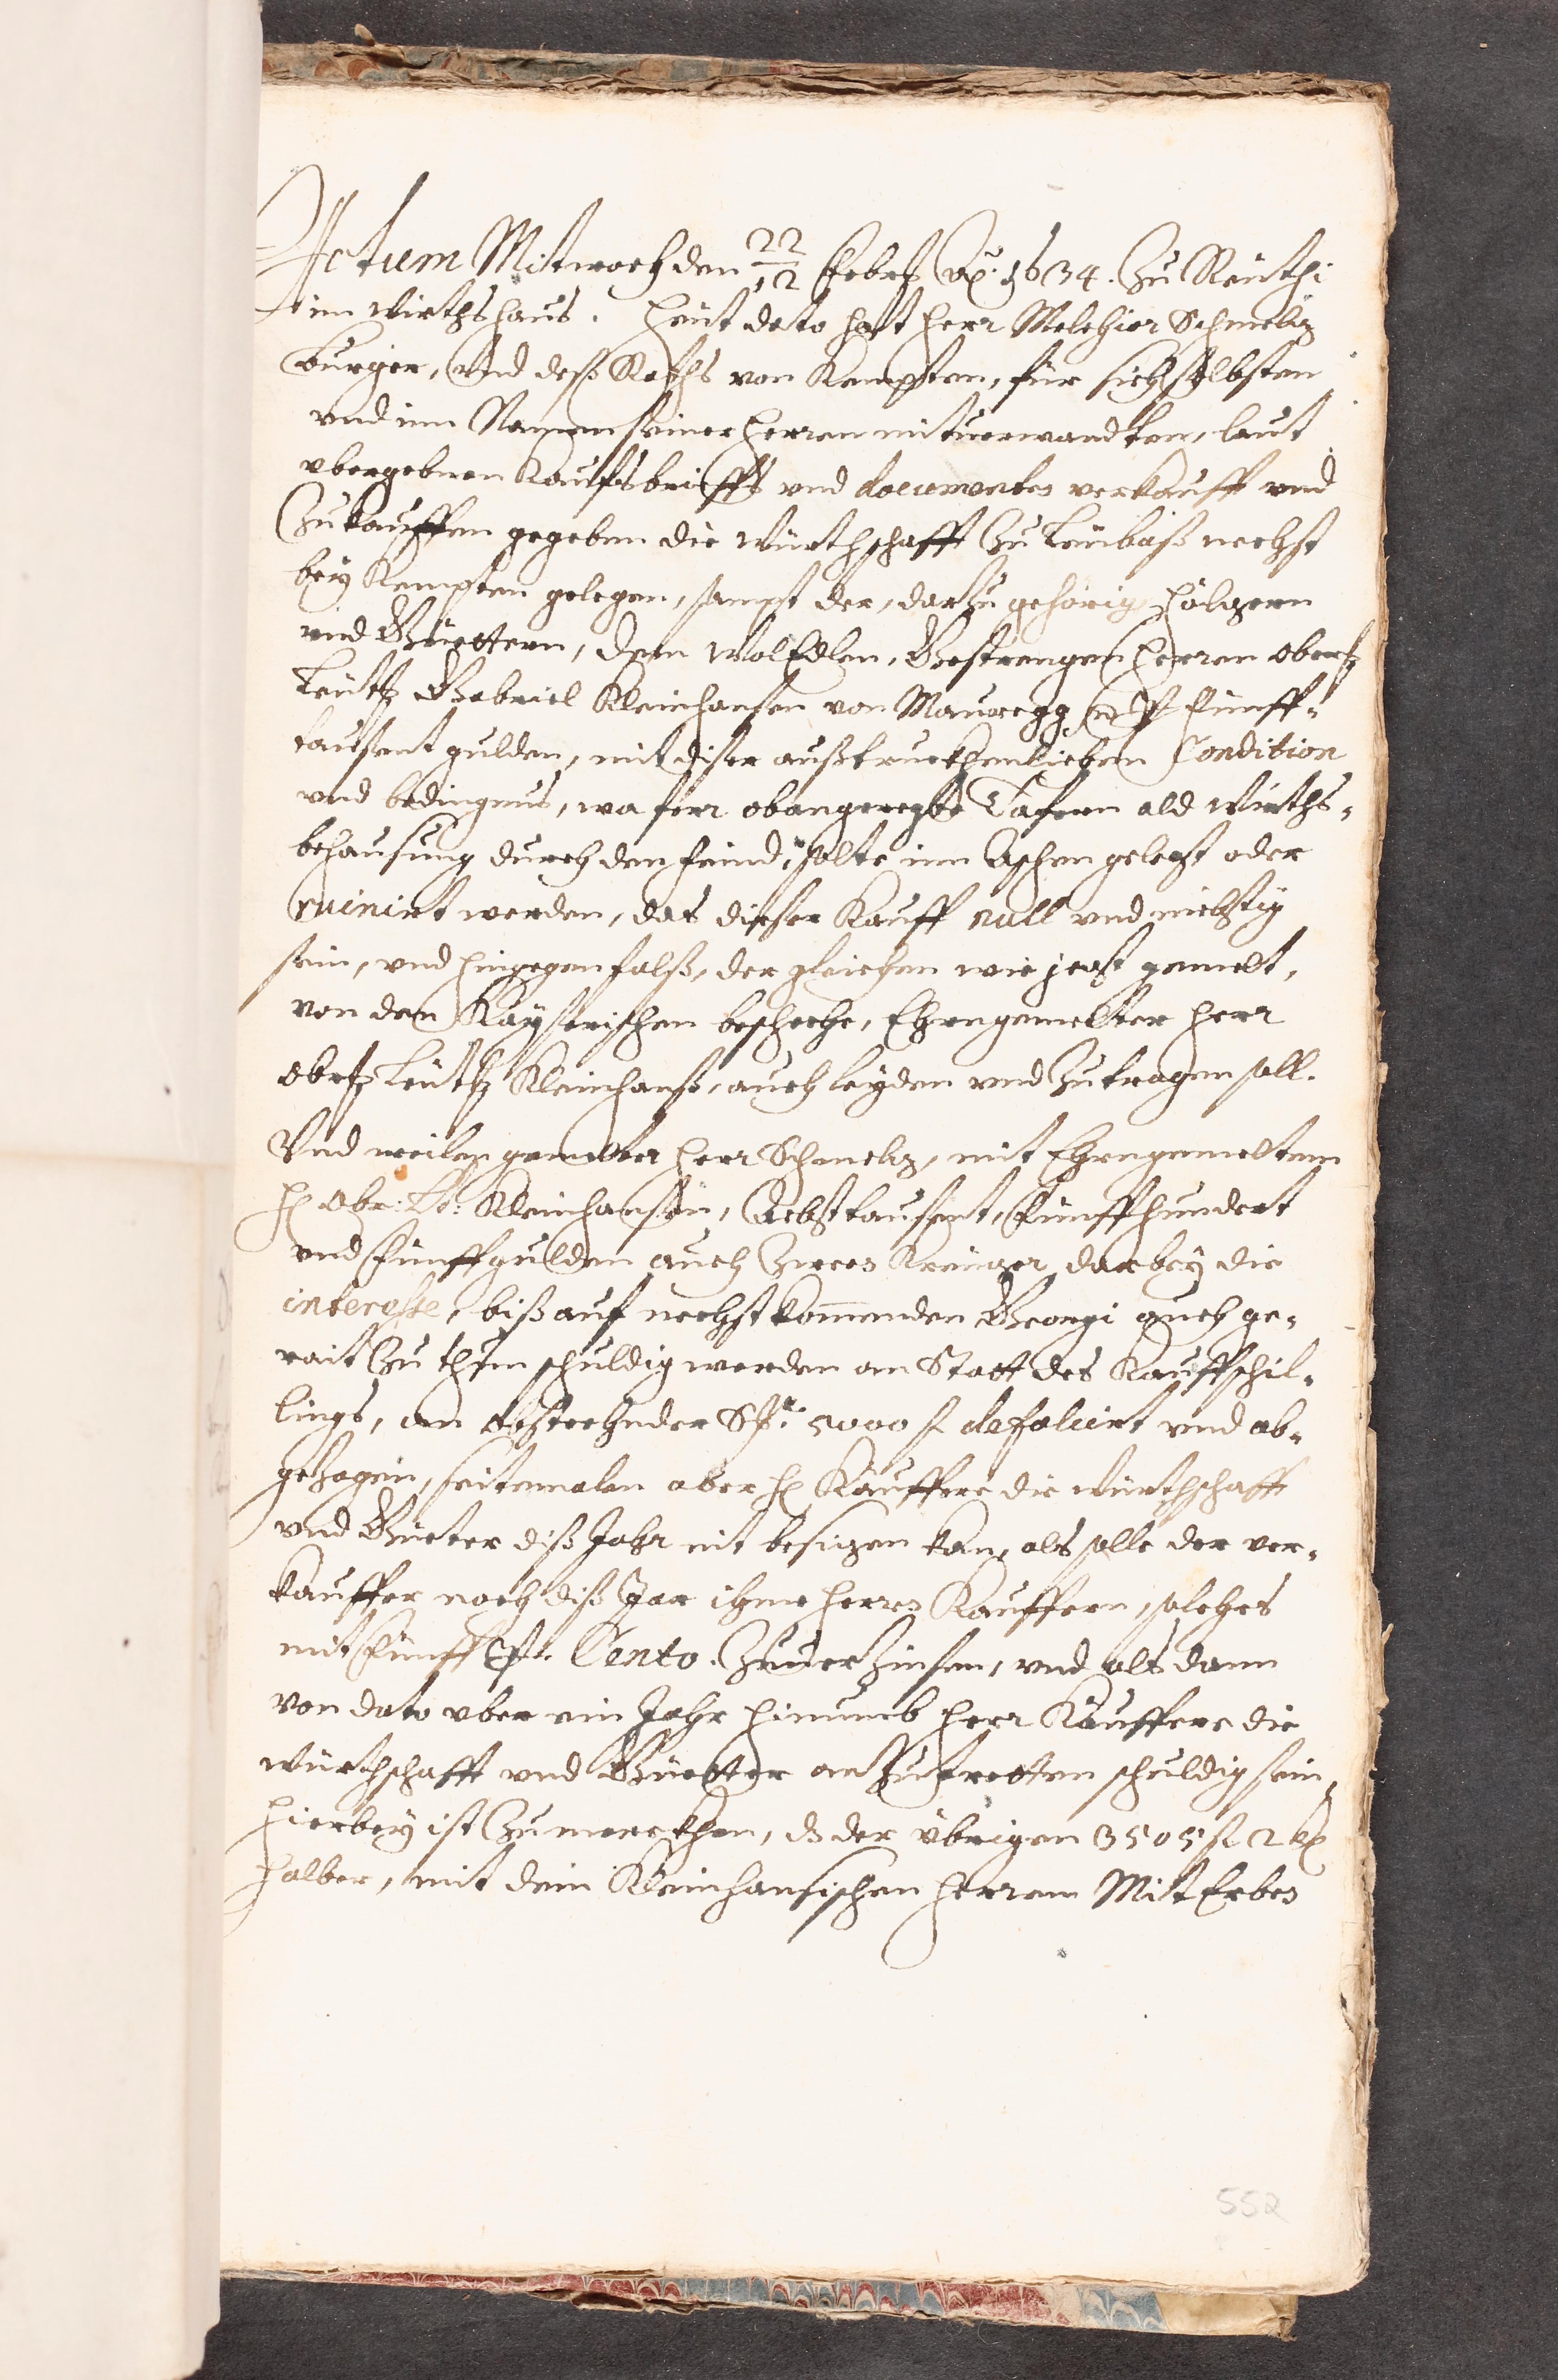 Actum Mitwoch den 22/12 Febrs Ao. 1634. Zu Reüthi
im Wirthshaus. Heüt dato hat Herr Melchior Schmelz
Burger, vnd deß Raths von Kempten, für sich selbsten
vnd inn Namen seiner Herren mituerwandten, laut
vbergebnen Kaufsbrieffs vnd documentes verkaufft vnd
Zukauffen gegeben die Würthschafft Zu Leübaß nechst
bey Kempten gelegen, sampt der, darzu gehörig Hölzern
vnd Güettern, dem WolEdlen, Gestrengen Herren Oberst
Leütt Gabriel Kleinhansen von Mauregg p fünff-
tausent gulden, mit diser außtruckhenlichen Condition
vnd bedingnus, wa ferr obangeregte Tafern ald Würths-
behausung durch den feind, solte inn Aschen gelegt oder
ruinirt werden, das dieser Kauff null vnd nichtig
sein, vnd hingegen falß, der gleichen wie jezt gemelt,
von den Kayserischen beschehe, Ehrngemelter Herr
Obrst Leütt Kleinhanß, auch leyden vnd Zutragen soll.
Vnd weilen gemelter Herr Schmelz, mit Ehrngemeltem
H Obr: Lt: Kleinhansen, Achttausent, Fünffhundert
vnd Fünffgulden auch Zween Kreüzer darbey die
interesse, biß auf nechstkommenden Georgi auch ge-
rait Zu thun schuldig worden an Statt des Kauffschil-
lings, an obstehnder Sa. 5000 f defalcirt vnd ab-
gezogen, seitemalen aber H Kauffere die Würthschafft
vnd Güeter diß Jahr nit besizen kan, als solle der ver-
kauffer noch diß Jar ihme Herren Kauffern, solches
mit Fünff P. Cento. Zuuerzinsen, vnd als dann
von dato vber ein Jahr hinumb Herr Kauffere die
Würthschafft vnd Güetter anzutretten schuldig sein,
Hierbey ist Zumerckhen, dz der übrigen 3505 f 2 kr
halber, mit dem Kleinhansischen Herren MitErben
552